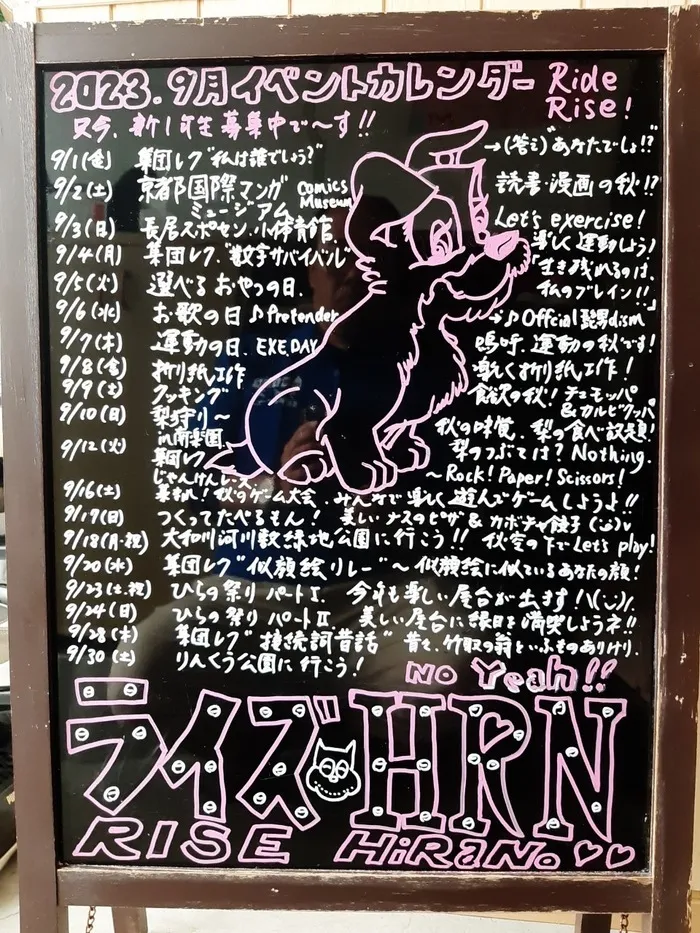 2023.9月イベントカレンダー Ride Rise!
只今、新1年生募集中で〜す!!
9/1(金) 集団レク"私は誰でしょう?" →(答え)"あなたでしょ!?"
9/2(土) 京都国際マンガミュージアム Comics Museum 読書・漫画の秋!?
9/3(日) 長居スポセン.小体育館 Let's exercise! 楽しく運動しよう♪
9/4(月) 集団レク."数字サバイバル" 「生き残れるのは、私のブレイン!!」
9/5(火) 選べるおやつの日.
9/6(水) お歌の日♪Pretender ♪Official髭男dism
9/7(木) 運動の日.EXE.DAY 嗚呼、運動の秋です!
9/8(金) 折り紙工作 楽しく折り紙工作!
9/9(土) クッキング 食欲の秋!チュモッパ&カルビクッパ
9/10(日) 梨狩り〜in南楽園 秋の味覚、梨の食べ放題! 梨のつぶては?Nothing.
9/12(火) 集団レクじゃんけんレース 〜Rock!Paper!Scissors!
9/16(土) 秋のゲーム大会 みんなで楽しく遊んでゲームしようよ!!
9/17(日) つくってたべるもん! 美しいナスのピザ&カボチャ餃子
9/18(月・祝) 大和川河川敷緑地公園に行こう!! 秋空の下でLet's play!
9/20(水) 集団レク"似顔絵リレー"〜似顔絵に似ているあなたの顔!
9/23(土.祝) ひらの祭りパートⅠ. 今年も楽しい屋台が出ます!\(^^)/.
9/24(日) ひらの祭りパートⅡ 美しい屋台に縁日を満喫しようネ!!
9/28(木) 集団レク"接続詞昔話" 昔々、竹取の翁といふものありけり.
9/30(土) りんくう公園に行こう!
NO Yeah!!
ライズHRN
RISE HiRaNo♡♡